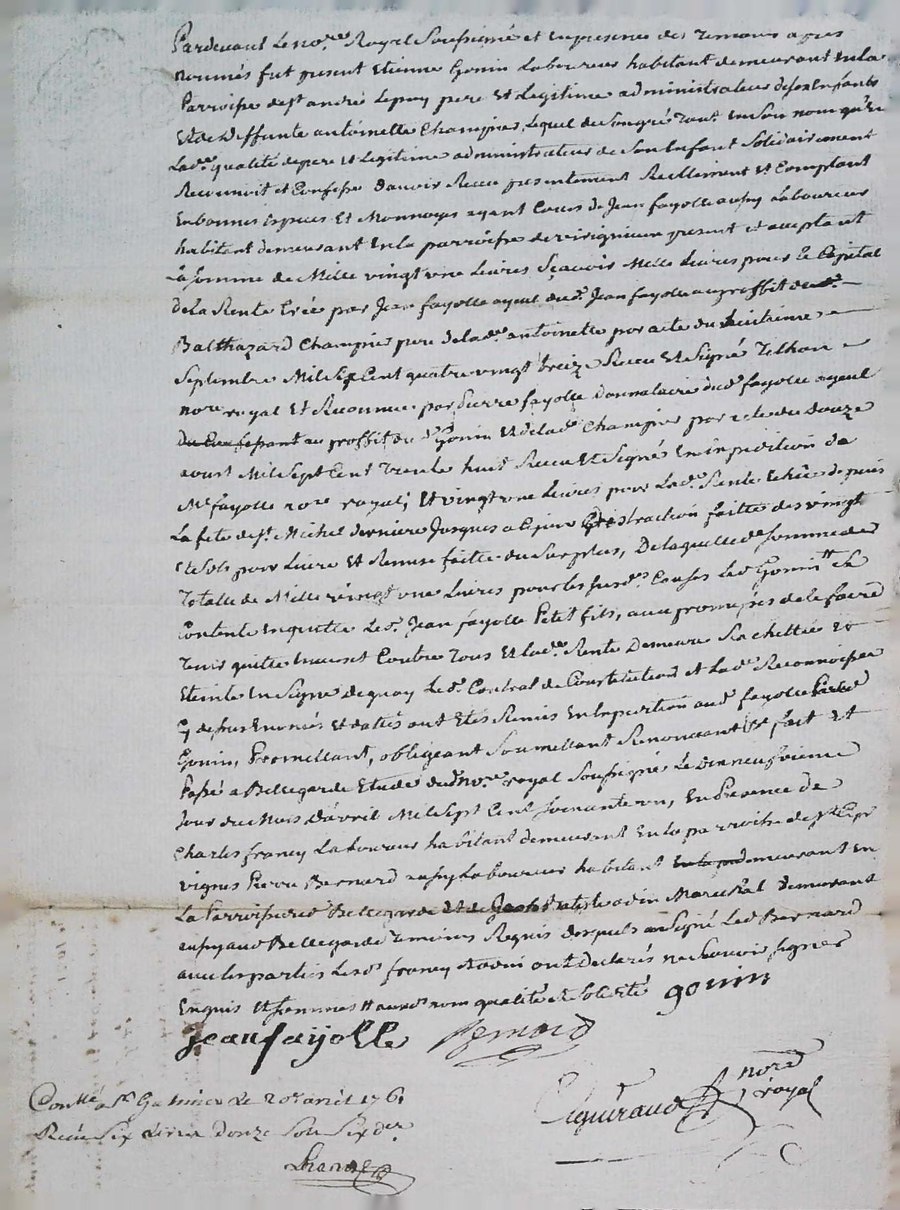 Pardevant Le no.re Royal Soussigné et En presence des Temoins apres
només fut present Etienne Gonin Laboureur habitant demeurant En La
Parroisse de st andré Lepuy pere Et Legitime administrateur de son Enfants
Et de Deffunte antoinette Champier, Lequel de son gré tant En Son nom qu'En
La d.e qualité de pere Et Legitime administrateur de Son Enfant Solidairement
Reconnoit et Confesse d'avoir Receu presentement Reellement Et Comptant
En bonnes Especes Et Monnoyes ayant Cours de Jean fayolle aussy Laboureur
habitant demeurant En La parroisse de present et acceptant
La Somme de Mille vingt une Livres Sçavoir Mille Livres pour Le Capital
de La Rente Créé par Jean fayolle ayeul du d. Jean fayolle au proffit de s.r
Balthazard Champier pere de La d.e antoinette par acte du huitieme
Septembre Mil Six Cent quatre vingt treize Receu Et Signé Telhon
no.re royal Et Reconnue par Pierre fayolle Donnataire du d. fayolle ayeul
au proffit du d. Gonin Et de La d.e Champier par acte du douze
aoust Mil Sept Cent Trente huit Receu Et Signé En Expedition de
M.e fayolle no.re royal; Et vingt une Livres pour La d.e Rente Echüe depuis
La fete de st. Michel derniere Jusques a Ce jour distraction faitte des vingt
Et Remise faitte du Surplus, De Laquelle d.e Somme de
Totalle de Mille vingt une Livres pour Les susd. Causes Le d. Gonin Se
Contente En quitte Le d. Jean fayolle Petit fils, avec promesses de le faire
Tenir quitte Envers Et Contre Tous Et La d.e Rente Demeure Rachettée et
Eteinte En Signe de quoy Le d. Contrat de Constitution et La d.e Reconnoissance
Cy dessus Enoncés Et dattés ont Etés Remis En Expedition au d. fayolle par Le d.
Gonin, Promettant, obligeant Soumettant Renonceant &c fait Et
Passé a Bellegarde Etude du d. no.re royal Soussigné Le Dixneufvieme
Jour du Mois D'avril Mil Sept Cent Soixante un, En Presence de
Charles francy Laboureur habitant demeurant En La parroisse de st Cyr
vignes Pierre Bernard aussy Laboureur habitant demeurant En
La Parroisse de Bellegarde Et Marechal demeurant
aussy au d. Bellegarde Temoins Requis desquels a Signé Le d. Bernard
avec Les parties Les d. francy Et ont declarés ne Scavoir Signer
Enquis Et Sommés aux d. nom qualité et Solidité gonin
Jean fayolle Bernard
no.re
royal
Con.lé a St Galmier Le 20e avril 1761
Receu Six Livres Douze Sou Six d.er